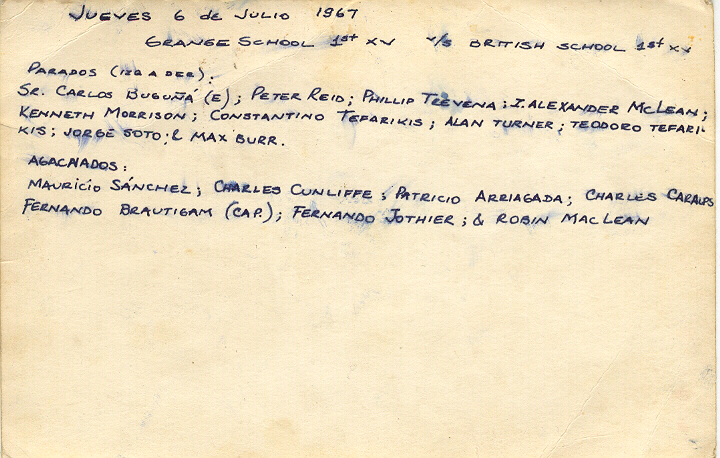 JUEVES 6 de JULIO 1967
GRANGE SCHOOL 1st XV v/s BRITISH SCHOOL 1st XV
PARADOS (IZQ A DER):
SR. CARLOS BUGUÑÁ (E); PETER REID; PHILLIP TREVENA; I. ALEXANDER MCLEAN;
KENNETH MORRISON; CONSTANTINO TEFARIKIS; ALAN TURNER; TEODORO TEFARI-
KIS; JORGE SOTO; & MAX BURR.
AGACHADOS:
MAURICIO SÁNCHEZ; CHARLES CUNLIFFE; PATRICIO ARRIAGADA; CHARLES CARALPS
FERNANDO BRAUTIGAM (CAP.); FERNANDO JOTHIER; & ROBIN MACLEAN